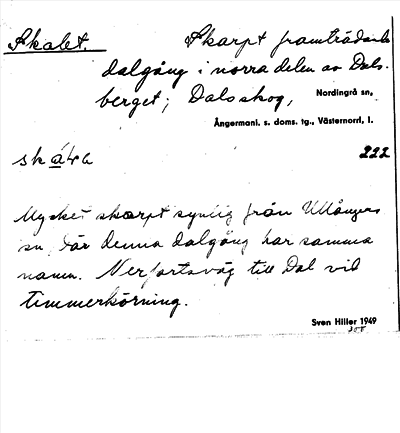 Skalet. Skarpt framträdande
dalgång i norra delen av Dals-
berget; Dals skog, Nordingrå sn,
Ångermanl. s. doms. tg., Västernorrl. l.
222
Mycket skarpt synlig från Ullångers
sn, där denna dalgång har samma
namn. Nerfartsväg till Dal vid
timmerkörning.
Sven Hiller 1949